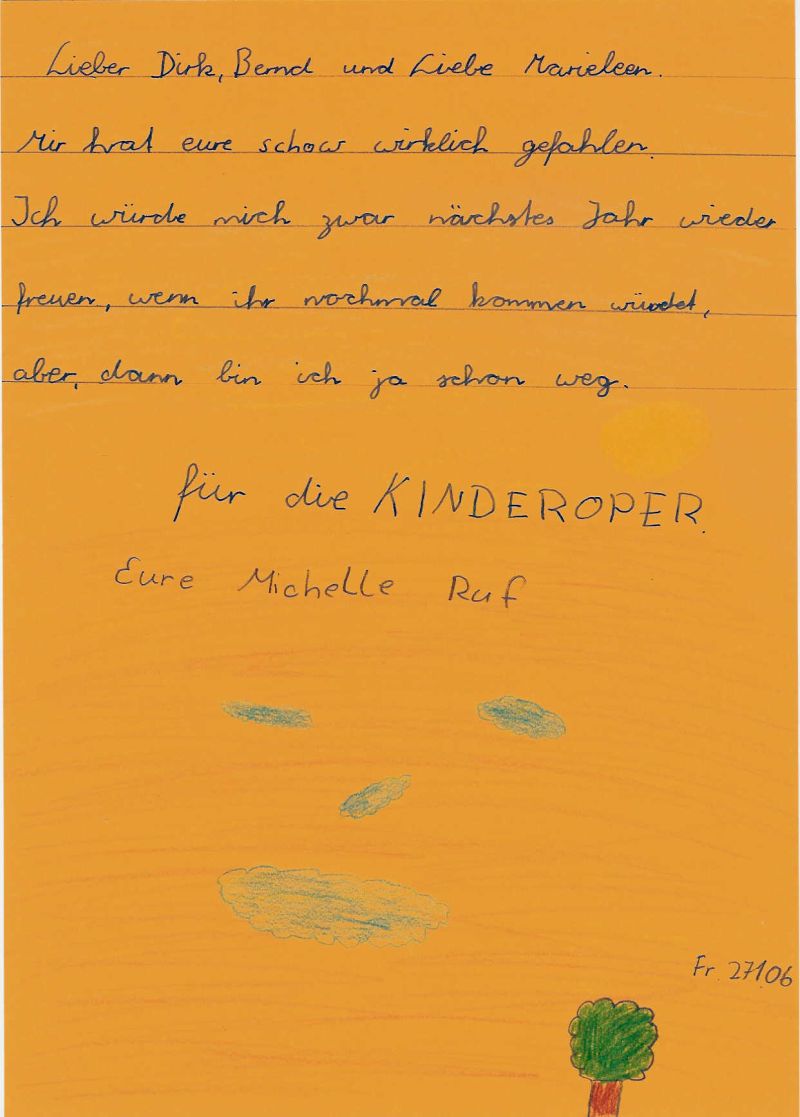 Lieber Dirk, Bernd und Liebe Marieleen.
Mir hat eure schow wirklich gefahlen.
Ich würde mich zwar nächstes Jahr wieder
freuen, wenn ihr nochmal kommen würdet,
aber, dann bin ich ja schon weg.
für die KINDEROPER.
Eure Michelle Ruf
Fr. 27.06